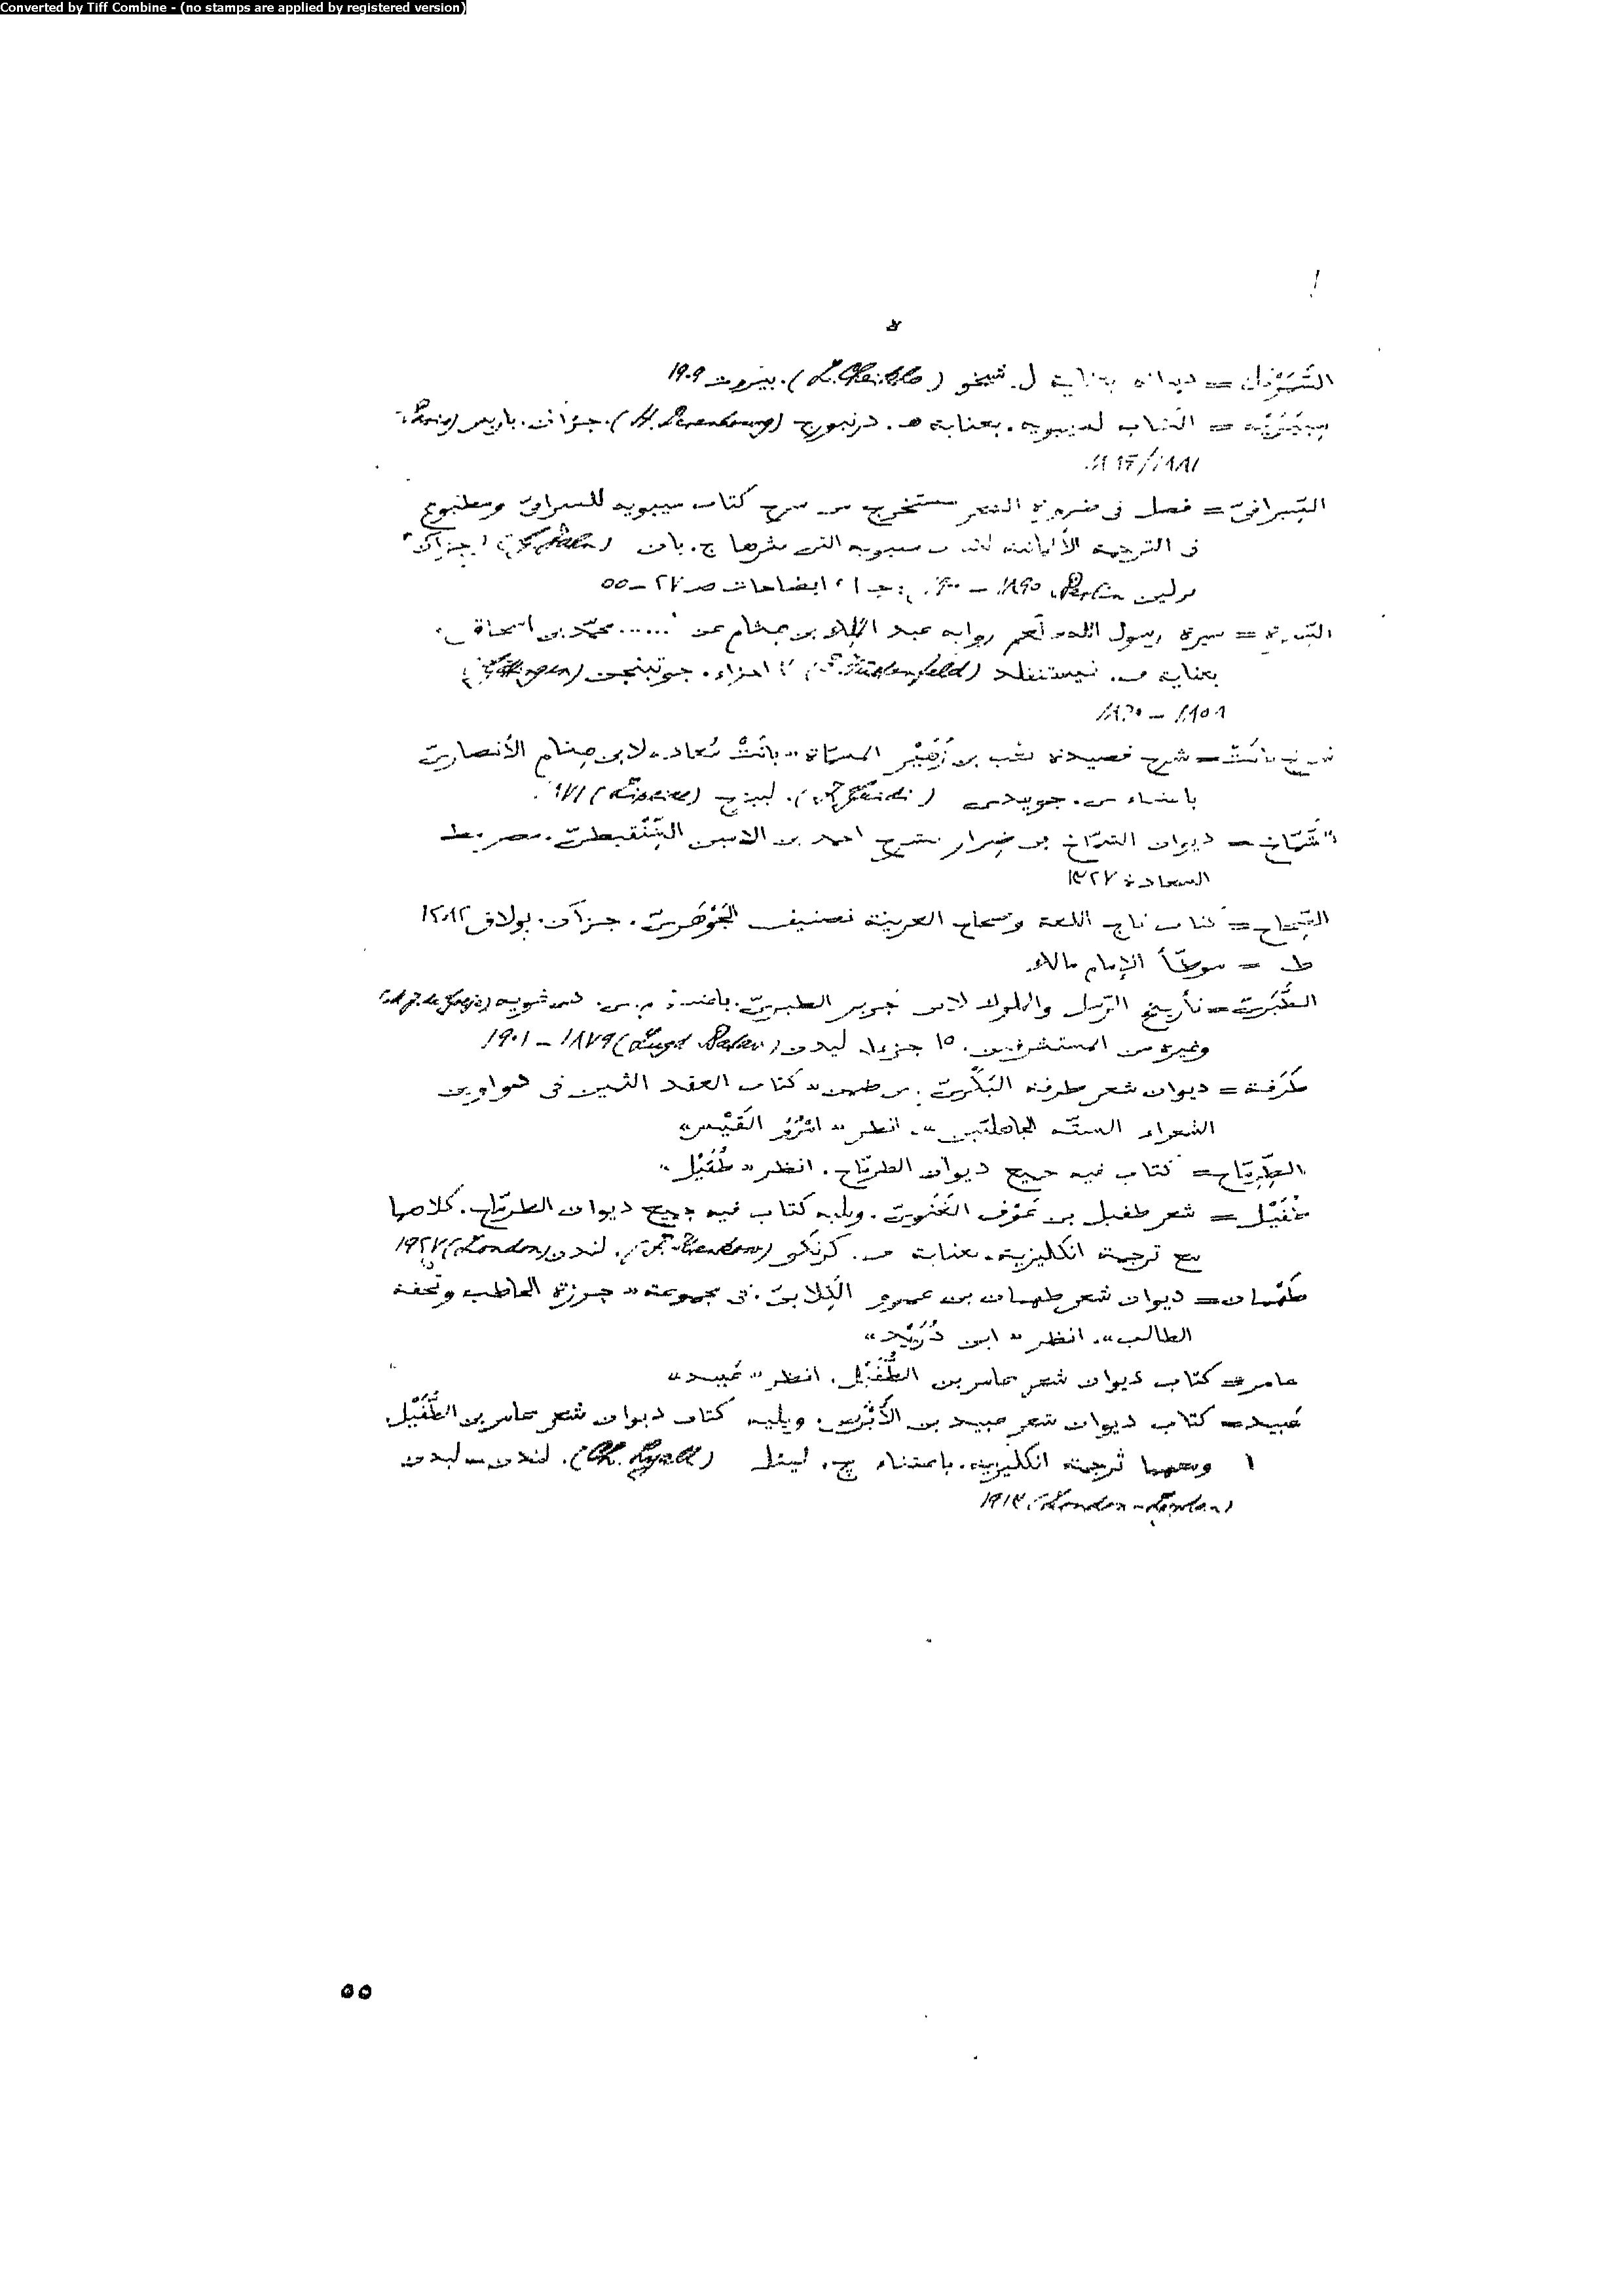 Converted by Tiff Combine - (no stamps are applied by registered version)
= ديوانه بعناية ل. شيخو (L. Cheikho). بيروت ١٩٠٩
سِيبَوَيْه = الكتاب لسيبويه. بعناية هـ. درنبورج (H. Derenbourg). جزآن. باريس (Paris)
السِّيرافيّ = فصل فى ضرورة الشعر مستخرج من شرح كتاب سيبويه للسيرافىّ ومطبوع
فى الترجمة الألمانية لكتاب سيبويه التى نشرها ج. يان جزآن
برلين Berlin ١٨٩٥ – ١٩٠٠: جـ ١، ايضاحات صـ ٢٧–٥٥
السيرة = سيرة رسول اللّٰه رواية عبد الملك بن هشام عن ...... محمّد بن اسحاق
بعناية ف. فيستنفلد (F. Wüstenfeld) ٢ اجزاء. جوتينجن
١٨٥٨ – ١٨٦٠
شرح بانت = شرح قصيدة كعب بن زُهَيْر المسمّاة «بانَتْ سُعاد» لابن هشام الأنصارىّ
باعتناء جويدى. ليبزج (Lipsiae) ١٨٧١
الشَّمّاخ = ديوان الشمّاخ بن ضِرار بشرح احمد بن الامين الشِّنْقيطىّ. مصر مط
السعادة ١٣٢٧
الصِّحاح = كتاب تاج اللغة وصحاح العربية تصنيف الجَوْهَرىّ. جزآن. بولاق ١٢٨٢
ط = موطّأ الإمام مالك
الطَّبَرىّ = تأريخ الرّسل والملوك لابن جرير الطبرىّ. باعتناء دى غويه
وغيره من المستشرقين. ١٥ جزءا. ليدن (Lugd. Batav) ١٨٧٩ – ١٩٠١
طَرَفة = ديوان شعر طرفة البَكْرىّ. من ضمن «كتاب العقد الثمين فى دواوين
الشعراء الستّة الجاهليّين». انظر «امْرُؤ القَيْس»
الطِّرِمّاح = كتاب فيه جميع ديوان الطرمّاح. انظر «طُفَيْل»
طُفَيْل = شعر طفيل بن عَوْف الغَنَوىّ. ويليه كتاب فيه جميع ديوان الطرمّاح. كلاهما
مع ترجمة انكليزية. بعناية ف. كرنكو (F. Krenkow). لندن (London) ١٩٢٧
طَهْمان = ديوان شعر طهمان بن عمرو الكِلابىّ. فى مجموعة «جرزة الحاطب وتحفة
الطالب». انظر «ابن دُرَيْد»
عامر = كتاب ديوان شعر عامر بن الطُّفَيْل. انظر «عَبيد»
عَبيد = كتاب ديوان شعر عبيد بن الأَبْرَص. ويليه كتاب ديوان شعر عامر بن الطُّفَيْل
ومعهما ترجمة انكليزية. باعتناء چ. ليئل (Ch. Lyall). لندن – ليدن
(London – Leyden) ١٩١٣
٥٥